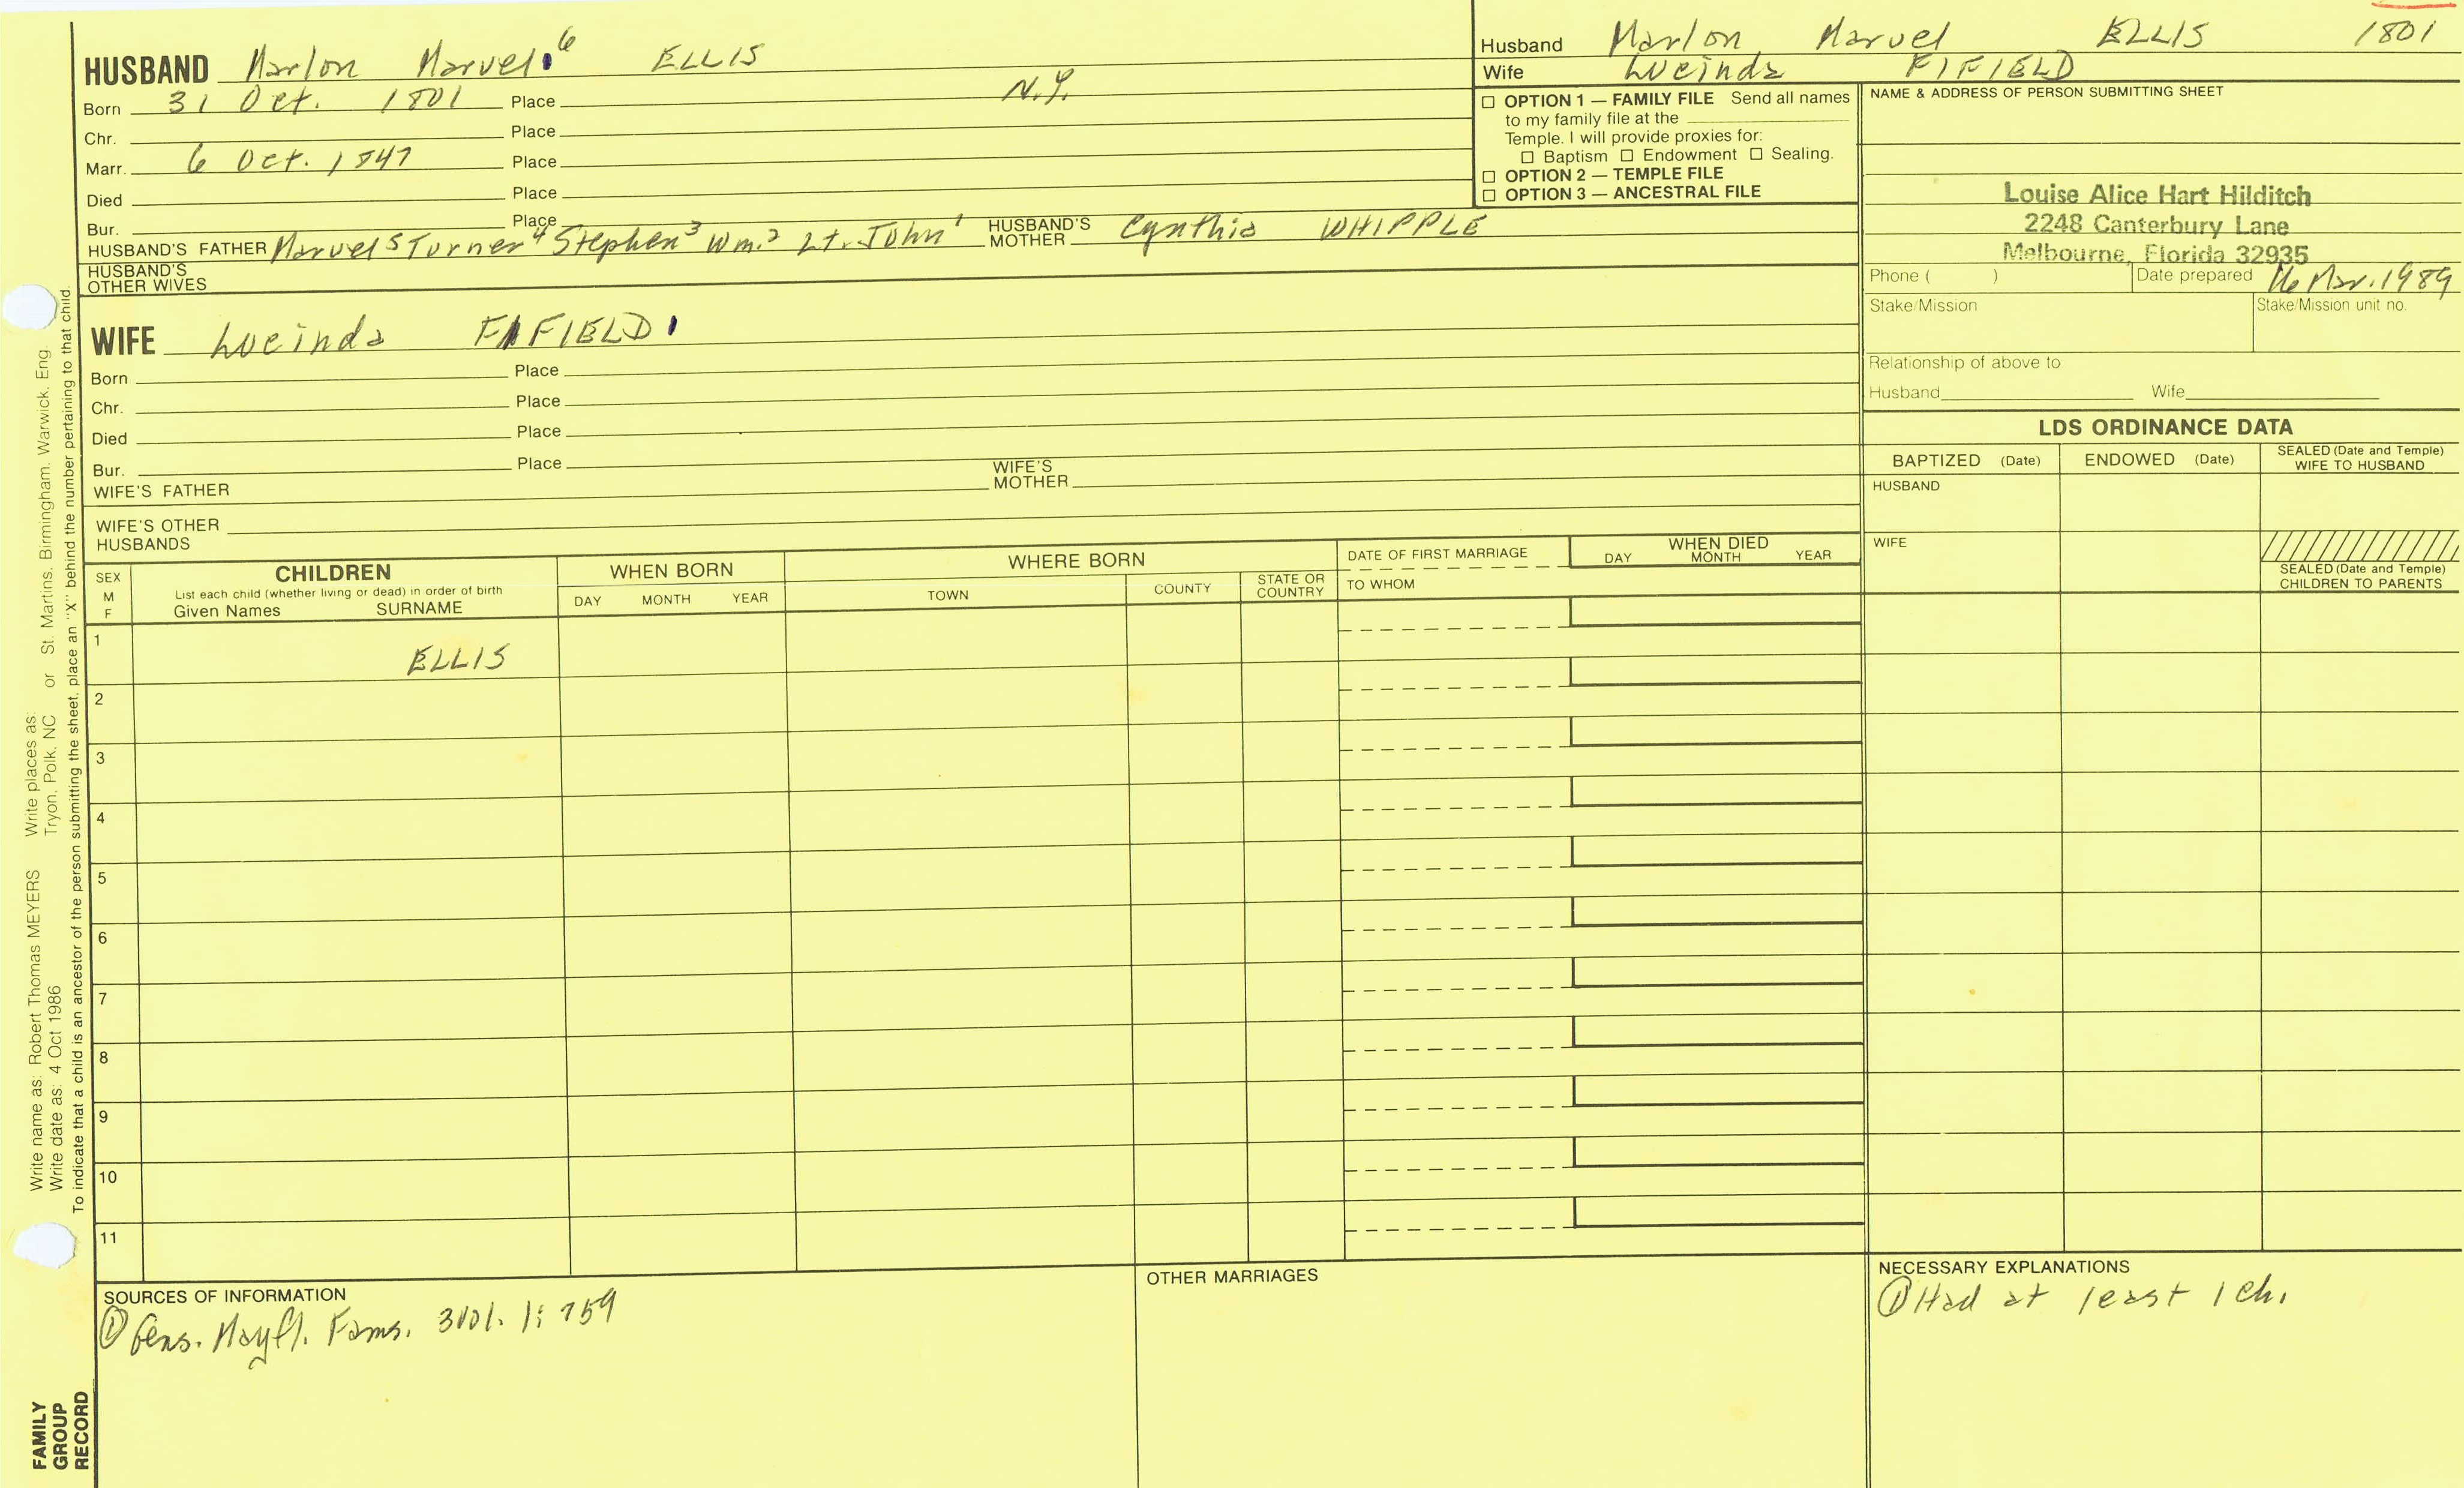 HUSBAND Marlon Marvel 6 ELLIS
Born 31 Oct. 1801 Place N.Y.
Chr. Place
Marr. 6 Oct. 1847 Place
Died Place
Bur. Place
HUSBAND'S FATHER Marvel 5 Turner 4 Stephen 3 Wm. 2 Lt. John 1 HUSBAND'S MOTHER Cynthia WHIPPLE
HUSBAND'S OTHER WIVES
Husband Marlon Marvel ELLIS 1801
Wife Lucinda FIFIELD
☐ OPTION 1 — FAMILY FILE Send all names
to my family file at the
Temple. I will provide proxies for:
☐ Baptism ☐ Endowment ☐ Sealing.
☐ OPTION 2 — TEMPLE FILE
☐ OPTION 3 — ANCESTRAL FILE
NAME & ADDRESS OF PERSON SUBMITTING SHEET
Louise Alice Hart Hilditch
2248 Canterbury Lane
Melbourne, Florida 32935
Phone ( ) Date prepared 16 Mar. 1989
Stake/Mission Stake/Mission unit no.
Relationship of above to
Husband Wife
WIFE Lucinda FIFIELD 1
Born Place
Chr. Place
Died Place
Bur. Place
WIFE'S FATHER WIFE'S MOTHER
WIFE'S OTHER HUSBANDS
LDS ORDINANCE DATA
BAPTIZED (Date) ENDOWED (Date) SEALED (Date and Temple) WIFE TO HUSBAND
HUSBAND
WIFE
SEALED (Date and Temple) CHILDREN TO PARENTS
SEX M F
CHILDREN
List each child (whether living or dead) in order of birth
Given Names SURNAME
WHEN BORN
DAY MONTH YEAR
WHERE BORN
TOWN COUNTY STATE OR COUNTRY
DATE OF FIRST MARRIAGE
TO WHOM
WHEN DIED
DAY MONTH YEAR
1 ELLIS
2
3
4
5
6
7
8
9
10
11
SOURCES OF INFORMATION
① Gens. Mayfl. Fams. 3Vol. 1: 759
OTHER MARRIAGES
NECESSARY EXPLANATIONS
① Had at least 1 ch.
Write name as: Robert Thomas MEYERS Write places as:
Write date as: 4 Oct 1986 Tryon, Polk, NC or St. Martins, Birmingham, Warwick, Eng.
To indicate that a child is an ancestor of the person submitting the sheet, place an "X" behind the number pertaining to that child.
FAMILY
GROUP
RECORD